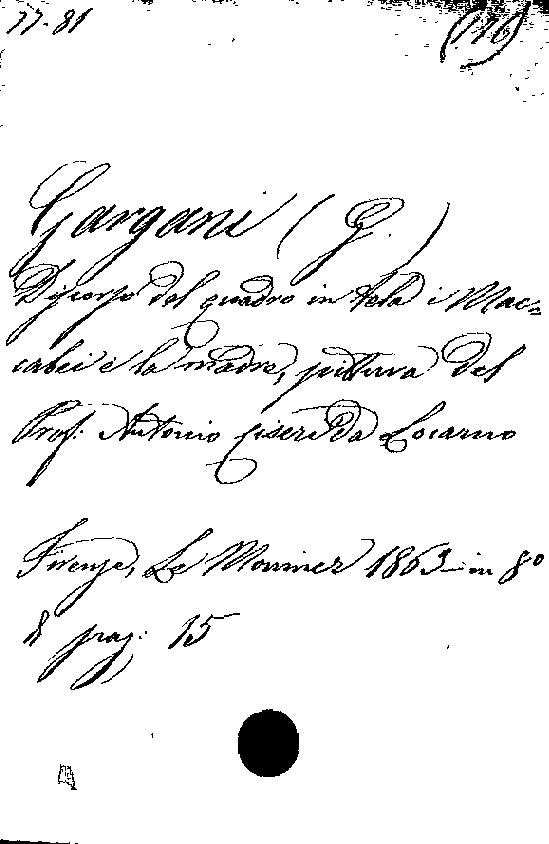 37-81
(116)
Gargani (G.)
Discorso del quadro in tela i Mac=
cabei e la madre, pittura del
Prof. Antonio Ciseri da Locarno
Firenze, Le Monnier 1863 in 8º
di pag: 15